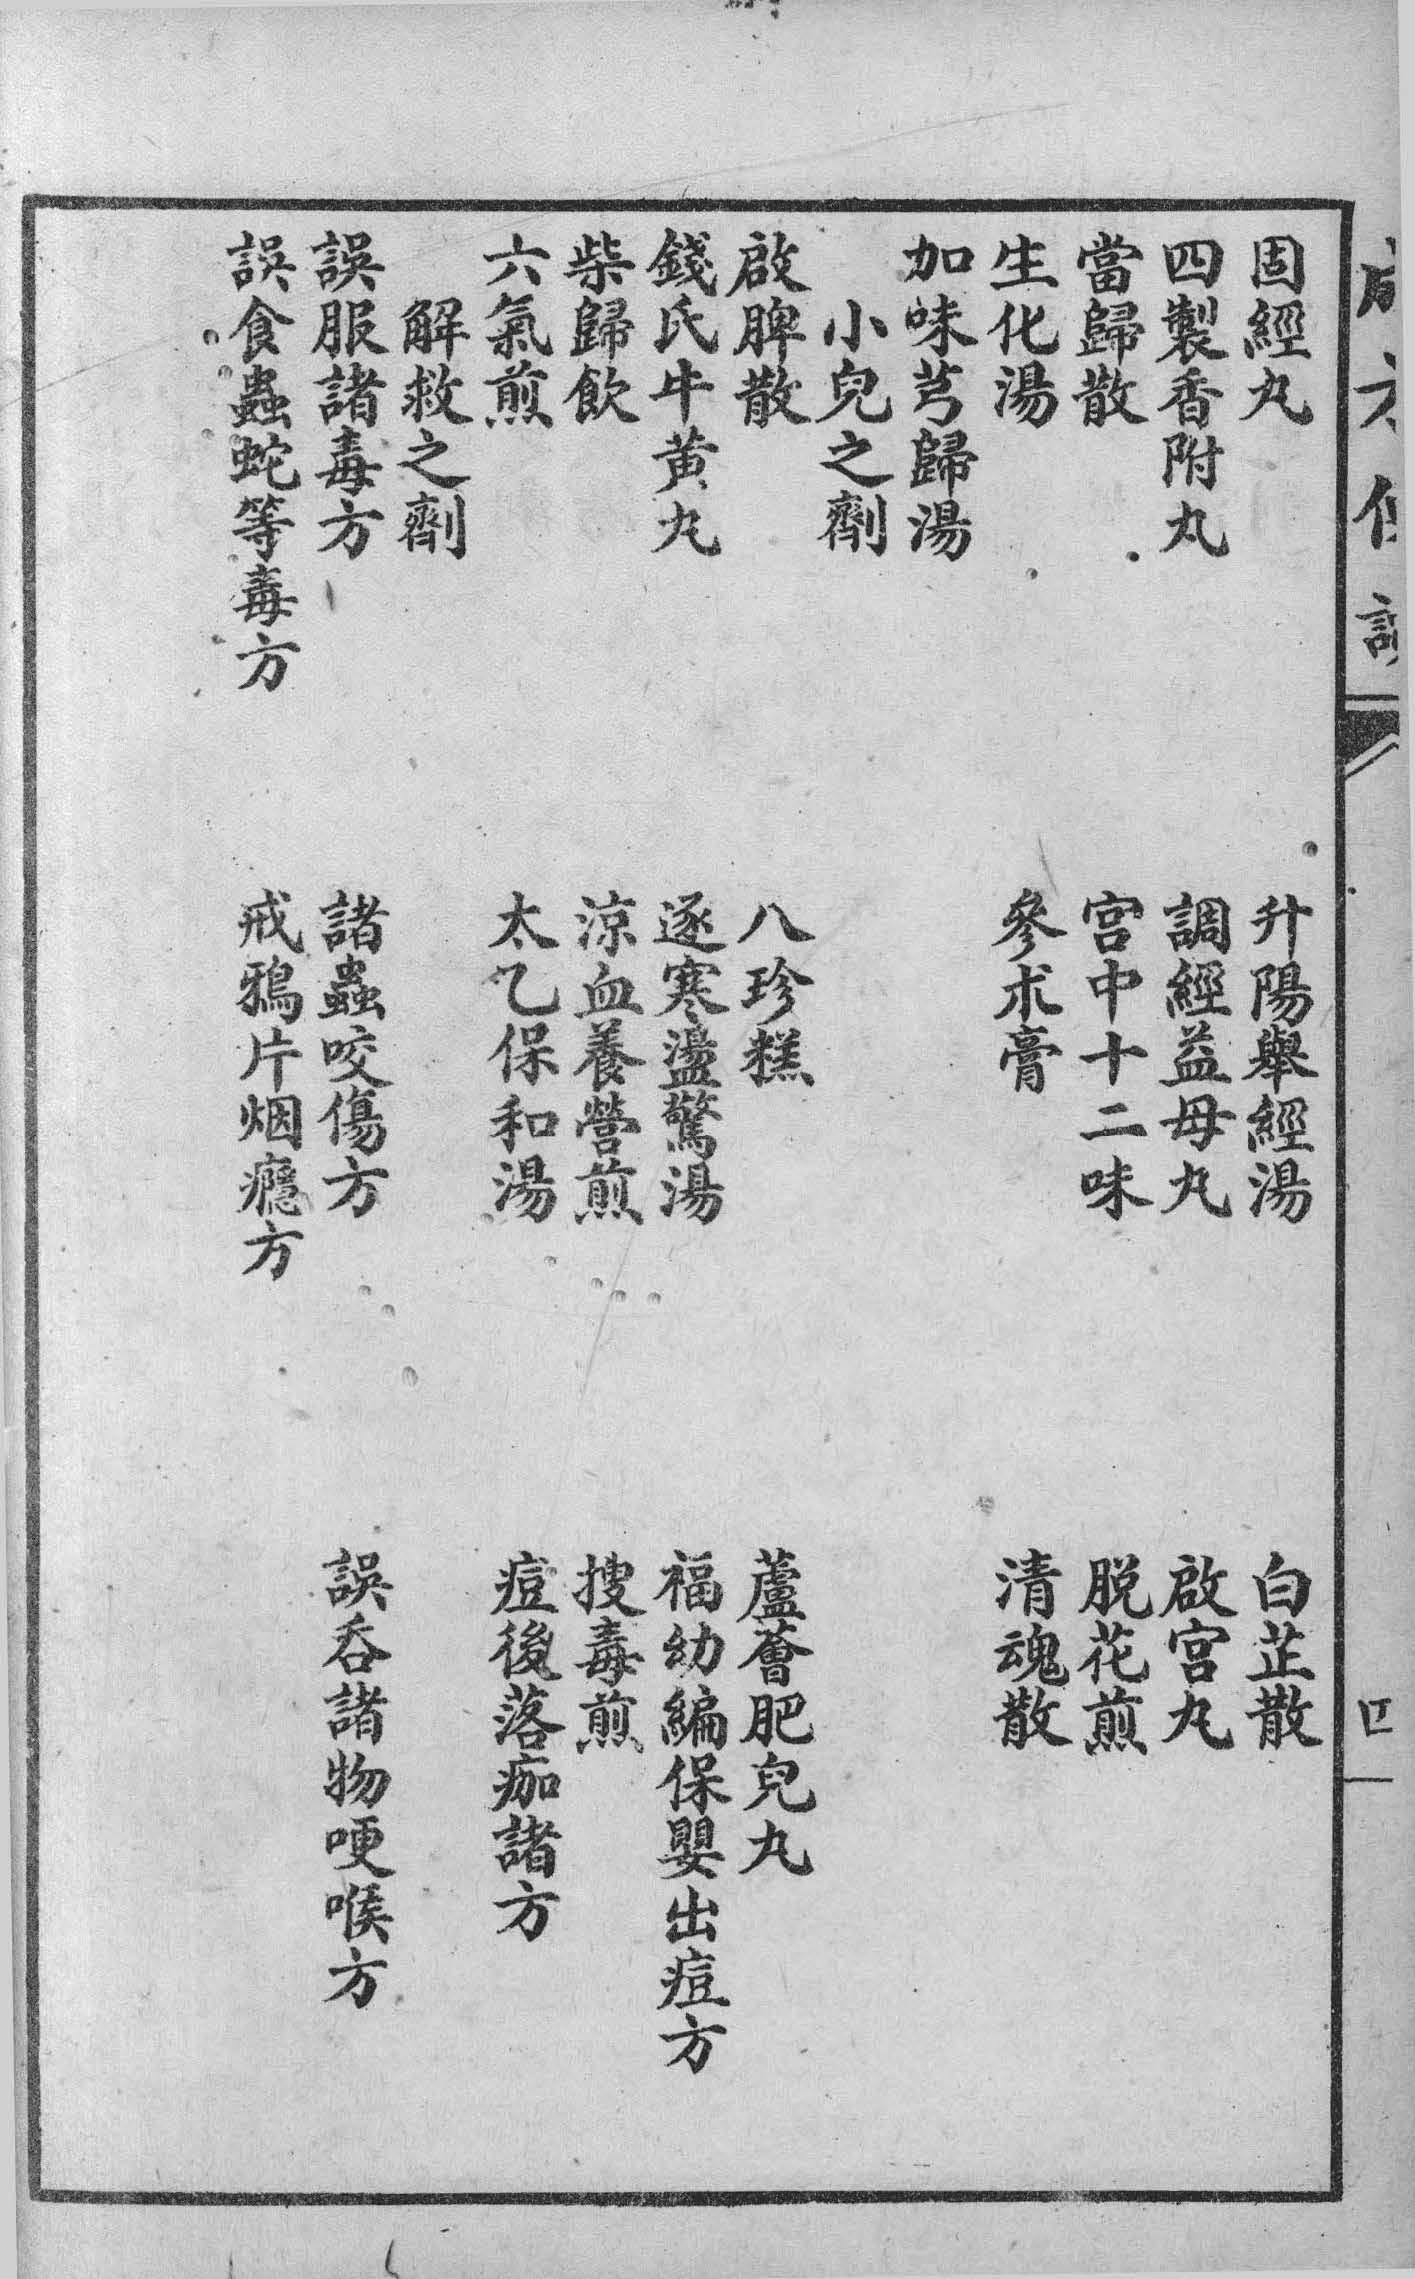 固經丸　升陽舉經湯　白芷散
四製香附丸　調經益母丸　啟宮丸
當歸散　宮中十二味　脫花煎
生化湯　參朮膏　清魂散
加味芎歸湯
小兒之劑
啟脾散　八珍糕　蘆薈肥兒丸
錢氏牛黃丸　逐寒盪驚湯　福幼編保嬰出痘方
柴歸飲　涼血養營煎　搜毒煎
六氣煎　太乙保和湯　痘後落痂諸方
解救之劑
誤服諸毒方　諸蟲咬傷方　誤吞諸物哽喉方
誤食蟲蛇等毒方　戒鴉片烟癮方